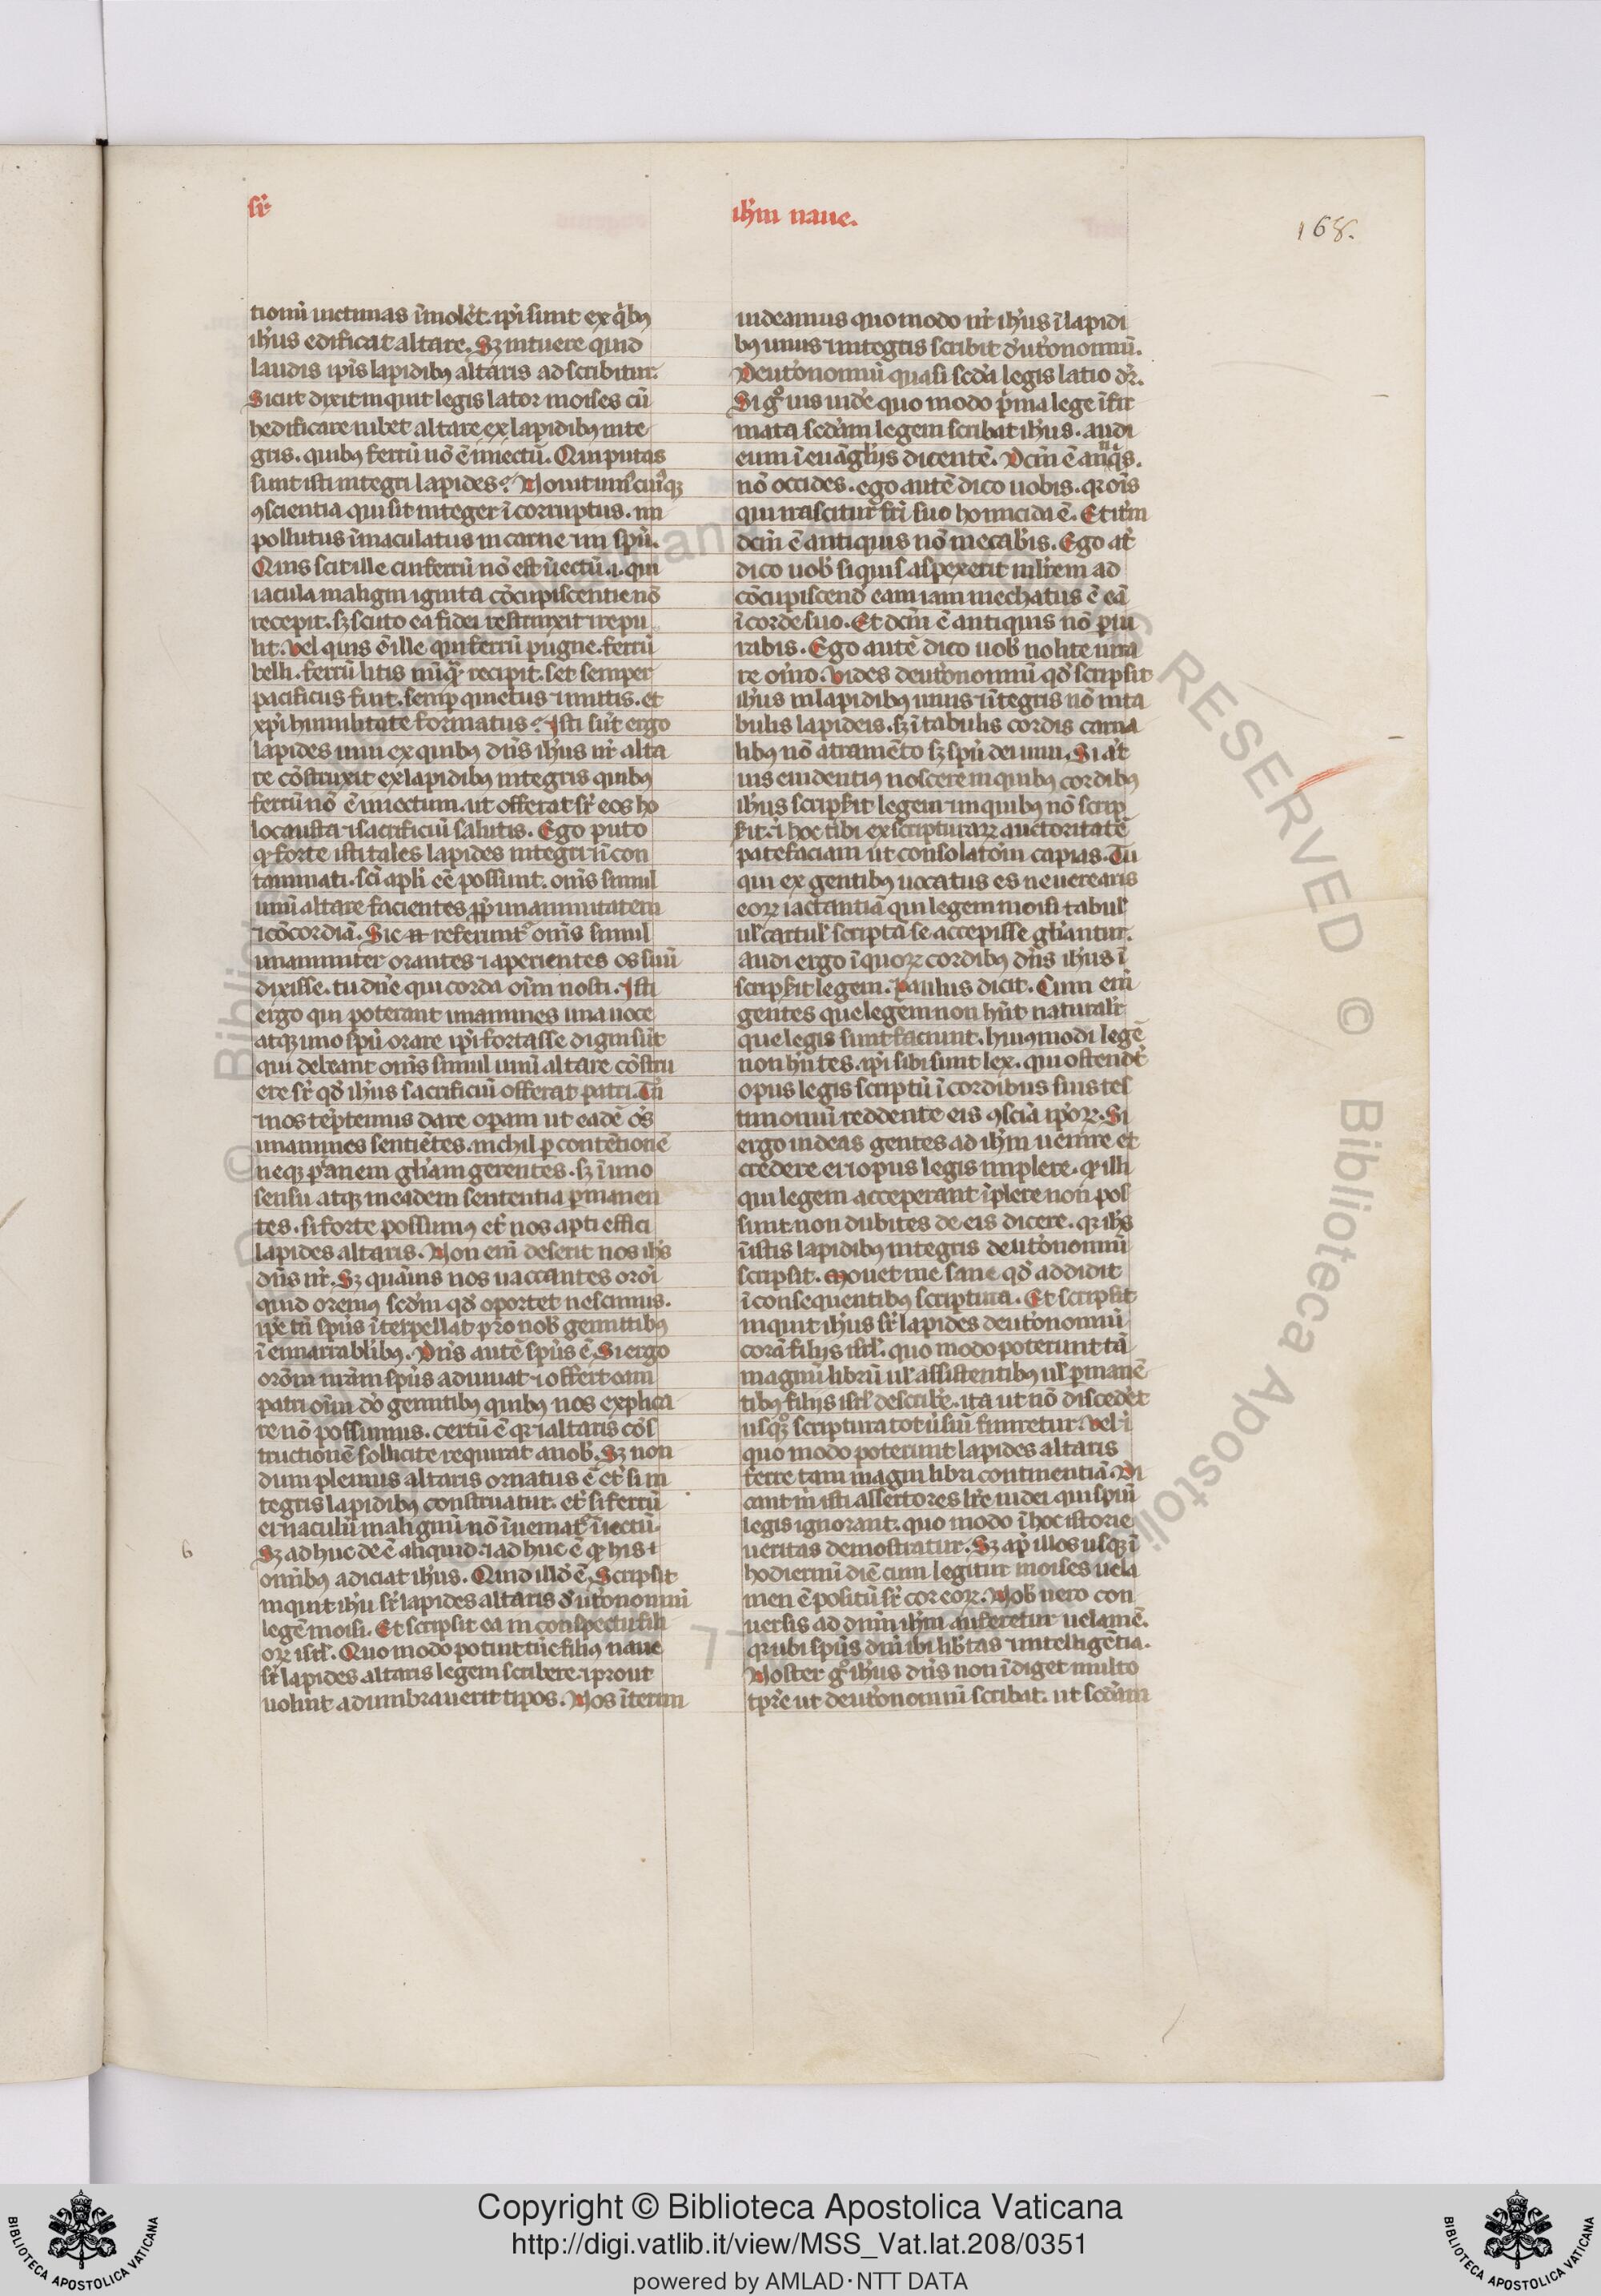 sr̄
ih̄m naue.
168.
tionū uictimas īmolēt. ip̄i sunt ex q̇bꝰ
ih̄us edificat altare. Sꝫ intuere quid
laudis ip̄is lapidibꝰ altaris adscribitur.
Sicut dixit inquit legis lator moises cū
hedificare iubet altare ex lapidibꝰ inte
gris. quibꝰ ferrū nō ē iniectū. Qui putas
sunt isti integri lapides? Nouit
ꝯscientia qui sit integer ī corruptus. im
pollutus īmaculatus in carne ⁊ in spū.
Quis scit ille cui ferrū nō est īiectū .i. qui
iacula maligni ignita cōcupiscentie nō
recepit. sꝫ scuto ea fidei restinxit ⁊ repu
lit. Vel quis ē ille qui ferrū pugne. ferrū
belli. ferrū litis nūq̄ recipit. set semper
pacificus fuit. semꝑ quietus ⁊ mitis. et
xp̄i humilitate formatus? Isti sūt ergo
lapides uiui ex quibus dn̄s ih̄us nr̄ alta
re cōstruxit ex lapidibꝰ integris quibꝰ
ferrū nō ē iniectum. ut offerat sr̄ eos ho
locausta ⁊ sacrificiū salutis. Ego puto
ꝙ forte isti tales lapides integri ⁊ īcon
taminati. sc̄i apl̄i eē possunt. om̄s simul
unū altare facientes ꝓp̄ unanimitatem
⁊ cōcordiā. Sic referunt᷑ om̄s simul
unanimiter orantes ⁊ aperientes os suū
dixisse. tu dn̄e qui corda om̄ nosti. Isti
ergo qui poterant unanimes una uoce
atqꝫ uno spū orare ip̄i fortasse digni sūt
qui debeant om̄s simul unū altare cōstru
ere sr̄ qd̄ ih̄us sacrificiū offerat patri. Tn̄
⁊ nos teptemus dare opam ut eadē om̄s
unanimes sentiētes. nichil ꝑ contētionē
neqꝫ ꝑ īanem gl̄iam gerentes. sꝫ ī uno
sensu atqꝫ in eadem sententia ꝑmanen
tes. si forte possumꝰ et̄ nos apti effici
lapides altaris. Non em̄ deserit nos ih̄s
dn̄s nr̄. Sꝫ quāuis nos uaccantes orōi
quid oremꝰ scd̄m qd̄ oportet nescimus.
ip̄e tn̄ spūs īterpellat pro nob̄ gemitibꝰ
ī enarrabilibꝰ. Dn̄s autē spūs ē. Si ergo
orōm nrām spūs adiuuat ⁊ offert eam
patri om̄ dō gemitibꝰ quibꝰ nos explica
re nō possumus. certū ē qr ⁊ altaris cōs
tructionē sollicite requirat a nob̄. Sꝫ non
dum plenius altaris ornatus ē et̄ si in
tegris lapidibꝰ construatur. et̄ si ferrū
ei iaculū malignū nō īueniat᷑ īiectū.
Sꝫ adhuc deē aliquid. ⁊ adhuc ē ꝙ his ⁊
om̄ibꝰ adiciat ih̄us. Quid illd̄ ē. Scripsit
inquit ih̄u sr̄ lapides altaris deut̄onomiū
legē moisi. Et scripsit ea in conspectu fili
oꝝ isrl̄. Quo modo potuit tūc filiꝰ naue
sr̄ lapides altaris legem scribere. ⁊ prout
uoluit adumbrauerit tipos. Nos īterim
uideamus quo modo nr̄ ih̄us ī lapidi
bꝰ uiuis ⁊ integris scribit deut̄onomiū.
Deut̄onomiū quasi scd̄a legis latio dr̄.
Si gͦ uis uidē quo modo p̄ma lege īfir
mata scd̄am legem scribat ih̄us. audi
eum ī euāgl̄ijs dicentē. Dcm̄ ē antiq̇s.
nō occides. ego autē dico uobis. qr om̄s
qui irascitur frī suo homicida ē. Et itm̄
dcm̄ ē antiquis nō mecab̄is. Ego at̄
dico uob̄ si quis aspexerit mulr̄em ad
cōcupiscendō eam iam mechatus ē eā
ī corde suo. Et dcm̄ ē antiquis nō ꝑiu
rabis. Ego autē dico uob̄ nolite iura
re om̄o. Vides deut̄onomiū qd̄ scripsit
ih̄us in lapidibꝰ uiuis ⁊ ītegris nō in ta
bulis lapideis. sꝫ ī tabulis cordis carna
libꝰ nō atramēto sꝫ spū dei uiui. Si at̄
uis euidentiꝰ noscere in quibus cordibꝰ
ih̄us scripsit legem ⁊ in quibꝰ nō scrip
sit. ⁊ hoc tibi ex scripturaꝝ auctoritatē
patefaciam ut consolatōm capias. Tu
qui ex gentibꝰ uocatus es ne uerearis
eoꝝ iactantiā qui legem moisi tabul̄
ul̄ cartul̄ scriptā se accepisse gl̄iantur.
audi ergo ī quoꝝ cordibꝰ dn̄s ih̄us ī
scripsit legem. Paulus dicit. Cum em̄
gentes que legem non hn̄t naturalr̄
que legis sunt faciunt. huiꝰmodi legē
non hn̄tes. ip̄i sibi sunt lex. qui ostendt̄
opus legis scriptū ī cordibus suis tes
timoniū reddente eis ꝯscīa ip̄oꝝ. Si
ergo uideas gentes ad ih̄m uenire et
credere ei ⁊ opus legis implere. ꝙ illi
qui legem acceperant īplere non pos
sunt non dubites de eis dicere. qr ih̄s
ī istis lapidibꝰ integris deut̄onomiū
scripsit. Mouet me sane qd̄ addidit
ī consequentibꝰ scriptura. Et scripsit
inquit ih̄us sr̄ lapides deut̄onomiū
corā filijs isrl̄. quo modo poterunt tā
magnū librū ul̄ assistentibus ul̄ ꝑmanē
tibꝰ filijs isrl̄ describe. ita ut nō disced̄et
usqꝫ scriptura totū siū finiretur. Vel ⁊
quo modo poterunt lapides altaris
ferre tam magni libri continentiā. Di
cant m̄ isti assertores lr̄e iudei qui spūi
legis ignorant. quo modo ī hoc istorie
ueritas demostratur. Sꝫ ap̄ illos usqꝫ ī
hodiernū diē cum legitur moises uela
men ē positū sr̄ cor eoꝝ. Nob̄ uero con
uersis ad dnm̄ ih̄m auferetur uelamē.
qr ubi spūs dn̄i ibi lib̄tas ⁊ intelligētia.
Noster gͦ ih̄us dn̄s non īdiget multo
tp̄re ut deut̄onomiū scribat. ut scd̄am
6
Copyright © Biblioteca Apostolica Vaticana
http://digi.vatlib.it/view/MSS_Vat.lat.208/0351
powered by AMLAD·NTT DATA
BIBLIOTECA APOSTOLICA VATICANA
BIBLIOTECA APOSTOLICA VATICANA